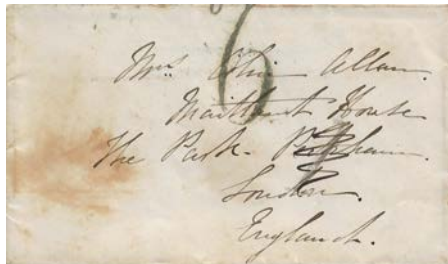 6
Mrs Colin Allan.
Maitland House
The Park. Peckham.
London.
England.